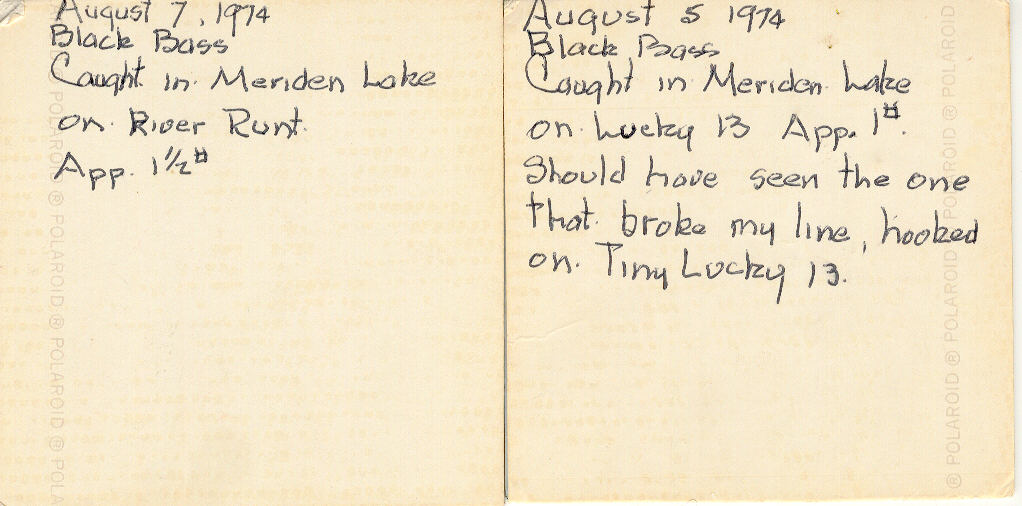 August 7, 1974
Black Bass
Caught in Meriden Lake
on River Runt.
App. 1 1/2#
POLAROID ® POLAROID ® POLAROID ® POLAROID ® POLA
August 5 1974
Black Bass
Caught in Meriden Lake
on Lucky 13 App. 1#.
Should have seen the one
that broke my line, hooked
on Tiny Lucky 13.
® POLAROID ® POLAROID ® POLAROID ® POLAROID